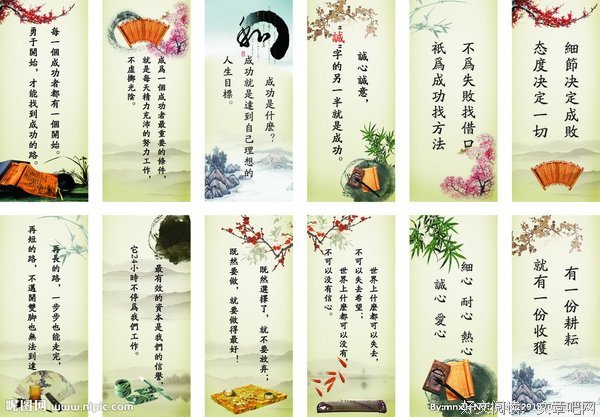 每一個成功者都有一個開始。
勇于開始，才能找到成功的路。
成爲一個成功者最重要的條件，
就是每天精力充沛的努力工作，
不虛擲光陰。
和
成功是什麽？
成功就是達到自己理想的
人生目標。
誠心誠意，
"誠"字的另一半就是成功。
不爲失敗找借口
衹爲成功找方法
細節决定成敗
态度决定一切
再長的路，一步步也能走完，
再短的路，不邁開雙脚也無法到達
最有效的資本是我們的信譽，
它24小時不停爲我們工作。
既然選擇了，就不要放弃；
既然要做，就要做得最好！
世界上什麽都可以失去，
不可以失去希望；
世界上什麽都可以没有，
不可以没有信心。
細心 耐心 熱心
誠心 愛心
有一份耕耘
就有一份收獲
昵图网 www.nipic.com